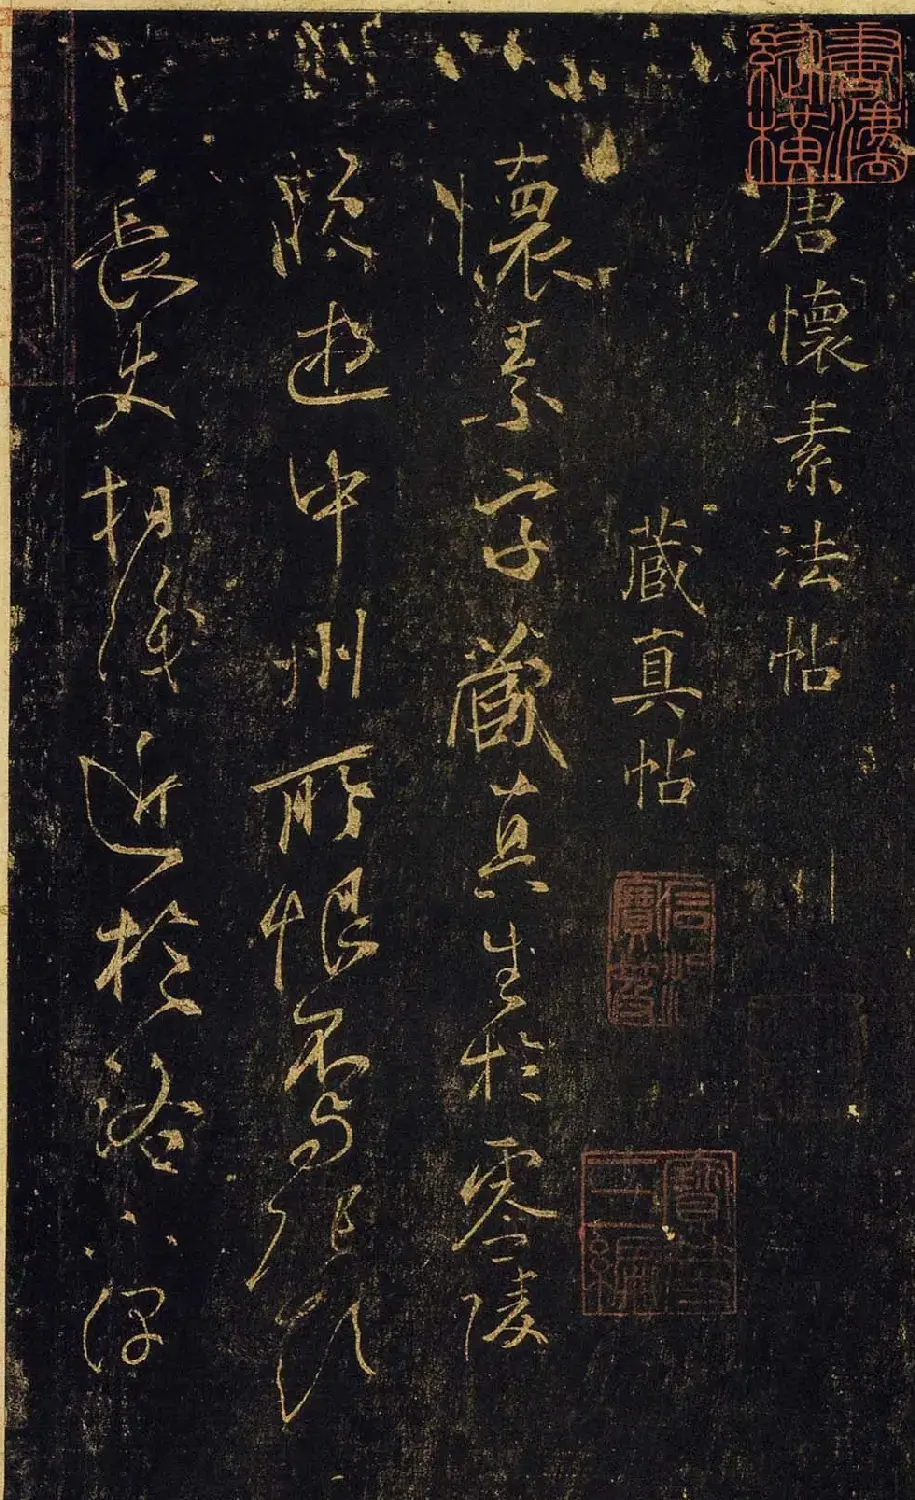 唐懷素法帖
藏真帖
寶笈
三編
懷素字藏真生於零陵
晚遊中州所恨不與張顛
長史相識近於洛下偶